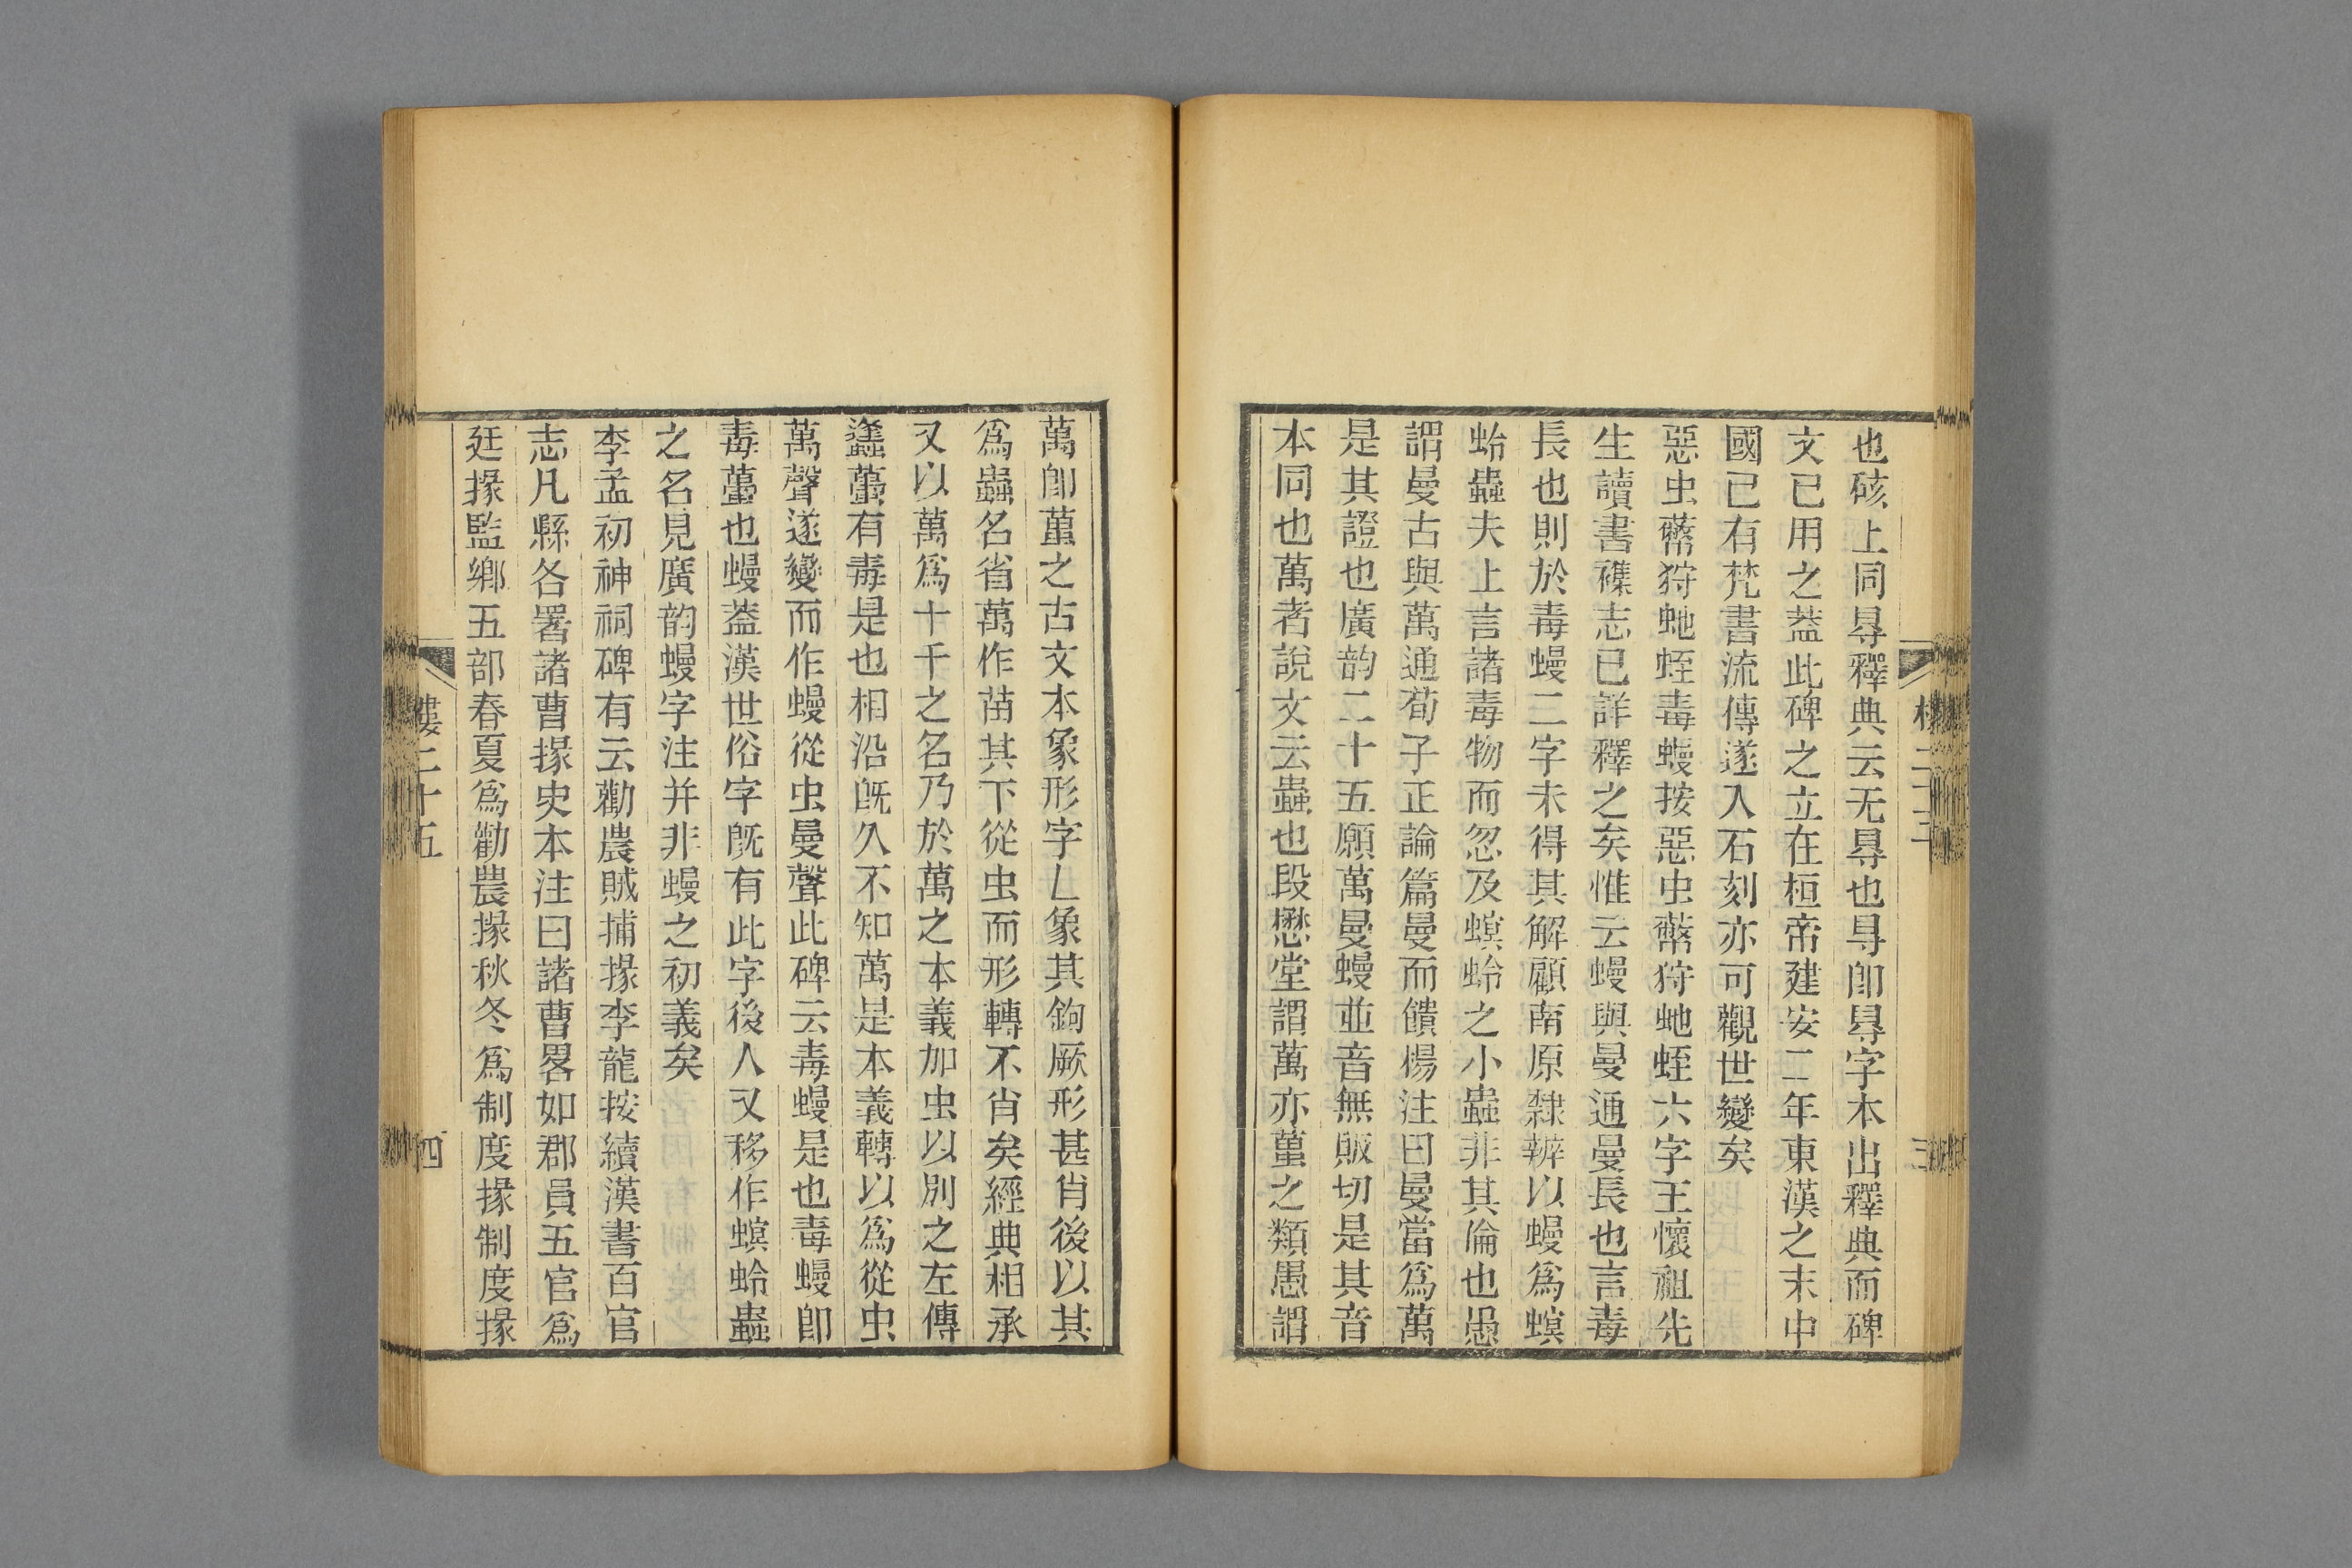 也硋上同㝵釋典云无㝵也㝵卽㝵字本出釋典而碑
文已用之葢此碑之立在桓帝建安二年東漢之末中
國已有梵書流傳遂入石刻亦可觀世變矣
惡虫蔽狩虵蛭毒蟃按惡虫𧓎狩虵蛭六字王懷祖先
生讀書襍志已詳釋之矣惟云蟃與曼通曼長也言毒
長也則於毒蟃二字未得其解顧南原隸辨以蟃爲螟
蛉蟲夫上言諸毒物而忽及螟蛉之小蟲非其倫也愚
謂曼古與萬通荀子正論篇曼而饋楊注曰曼當爲萬
是其證也廣韵二十五願萬曼蟃並音無販切是其音
本同也萬者說文云蟲也段懋堂謂萬亦蠆之類愚謂
萬卽蠆之古文本象形字乚象其鉤厥形甚肖後以其
爲蟲名省萬作苗其下從虫而形轉不肖矣經典相承
又以萬爲十千之名乃於萬之本義加虫以別之左傳
蠭蠆有毒是也相沿旣久不知萬是本義轉以爲從虫
萬聲遂變而作蟃從虫曼聲此碑云毒蟃是也毒蟃卽
毒蠆也蟃葢漢世俗字旣有此字後人又移作螟蛉蟲
之名見廣韵蟃字注并非蟃之初義矣
李孟初神祠碑有云勸農賊捕掾李龍按續漢書百官
志凡縣各署諸曹掾史本注曰諸曹畧如郡員五官爲
廷掾監鄉五部春夏爲勸農掾秋冬爲制度掾制度掾
樓二十五
四